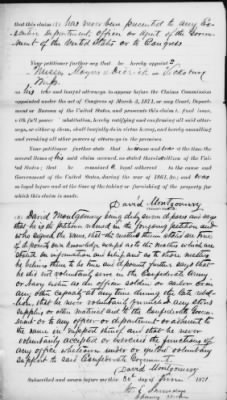 that this claim has never been presented to any Ex-
ecutive Department, officer or agent of the Govern-
ment of the United States or to Congress
Your petitioner further say that he hereby appoint
Messrs Mayers & Vicksburg
Miss
his true and lawful attorneys to appear before the Claims Commission
appointed under the act of Congress of March 3, 1871, or any Court, Depart-
ment or Bureau of the United States, and prosecute this claim to final issue,
with full power of substitution, hereby ratifying and confirming all said attor-
neys, or either of them, shall lawfully do in virtue hereof, and hereby annulling
and revoking all other powers of attorneys in the premises.
Your petitioner further state that he was and is at the time the
several items of his said claim accrued, as stated therein, citizen of the United
States; that he remained loyal adherent to the cause and
Government of the United States, during the war of 1861, &c., and was
as loyal before and at the time of the taking or furnishing of the property for
which this claim is made.
David Montgomery
David Montgomery being duly sworn deposes and says
that he is the petitioner named in the foregoing petition and
who signed the same, that the matters therein stated are true
of deponents own knowledge except as to the matters which are
stated on information and belief and as to those matters
he believes them to be true and deponent further says that
he did not voluntarily serve in the Confederate Army
or Navy either as an officer soldier or sailor or in
any other capacity at any time during the late rebel-
lion, that he never voluntarily furnished any stores
supplies or other material aid to the Confederate Govern-
ment or to any officer or department or adherent to
the same in support thereof and that he never
voluntarily accepted or exercised the functions of
any office whatsoever under or yielded voluntary
support to said Confederate Government
David Montgomery
Subscribed and sworn before me 1871